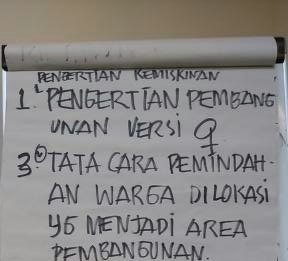 PENGERTIAN KEMISKINAN
1. PENGERTIAN PEMBANG
UNAN VERSI 9
3. TATA CARA PEMINDAH-
AN WARGA DILOKASI
YG MENJADI AREA
PEMBANGUNAN.